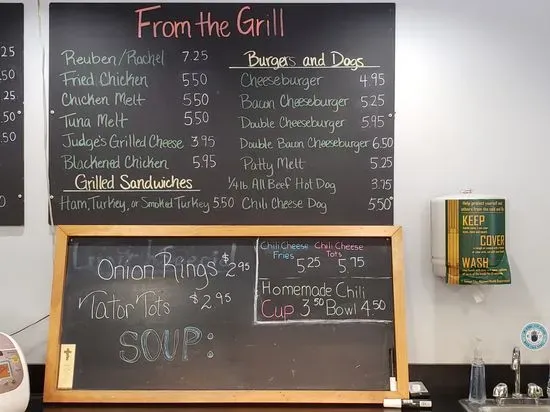 From the Grill
Reuben/Rachel 7.25
Fried Chicken 5.50
Chicken Melt 5.50
Tuna Melt 5.50
Judge's Grilled Cheese 3.95
Blackened Chicken 5.95
Grilled Sandwiches
Ham, Turkey, or Smoked Turkey 5.50
Burgers and Dogs
Cheeseburger 4.95
Bacon Cheeseburger 5.25
Double Cheeseburger 5.95
Double Bacon Cheeseburger 6.50
Patty Melt 5.25
1/4 lb. All Beef Hot Dog 3.75
Chili Cheese Dog 5.50
Onion Rings $2.95
Tator Tots $2.95
SOUP:
Chili Cheese Fries 5.25
Chili Cheese Tots 5.75
Homemade Chili
Cup 3.50 Bowl 4.50
KEEP
COVER
WASH